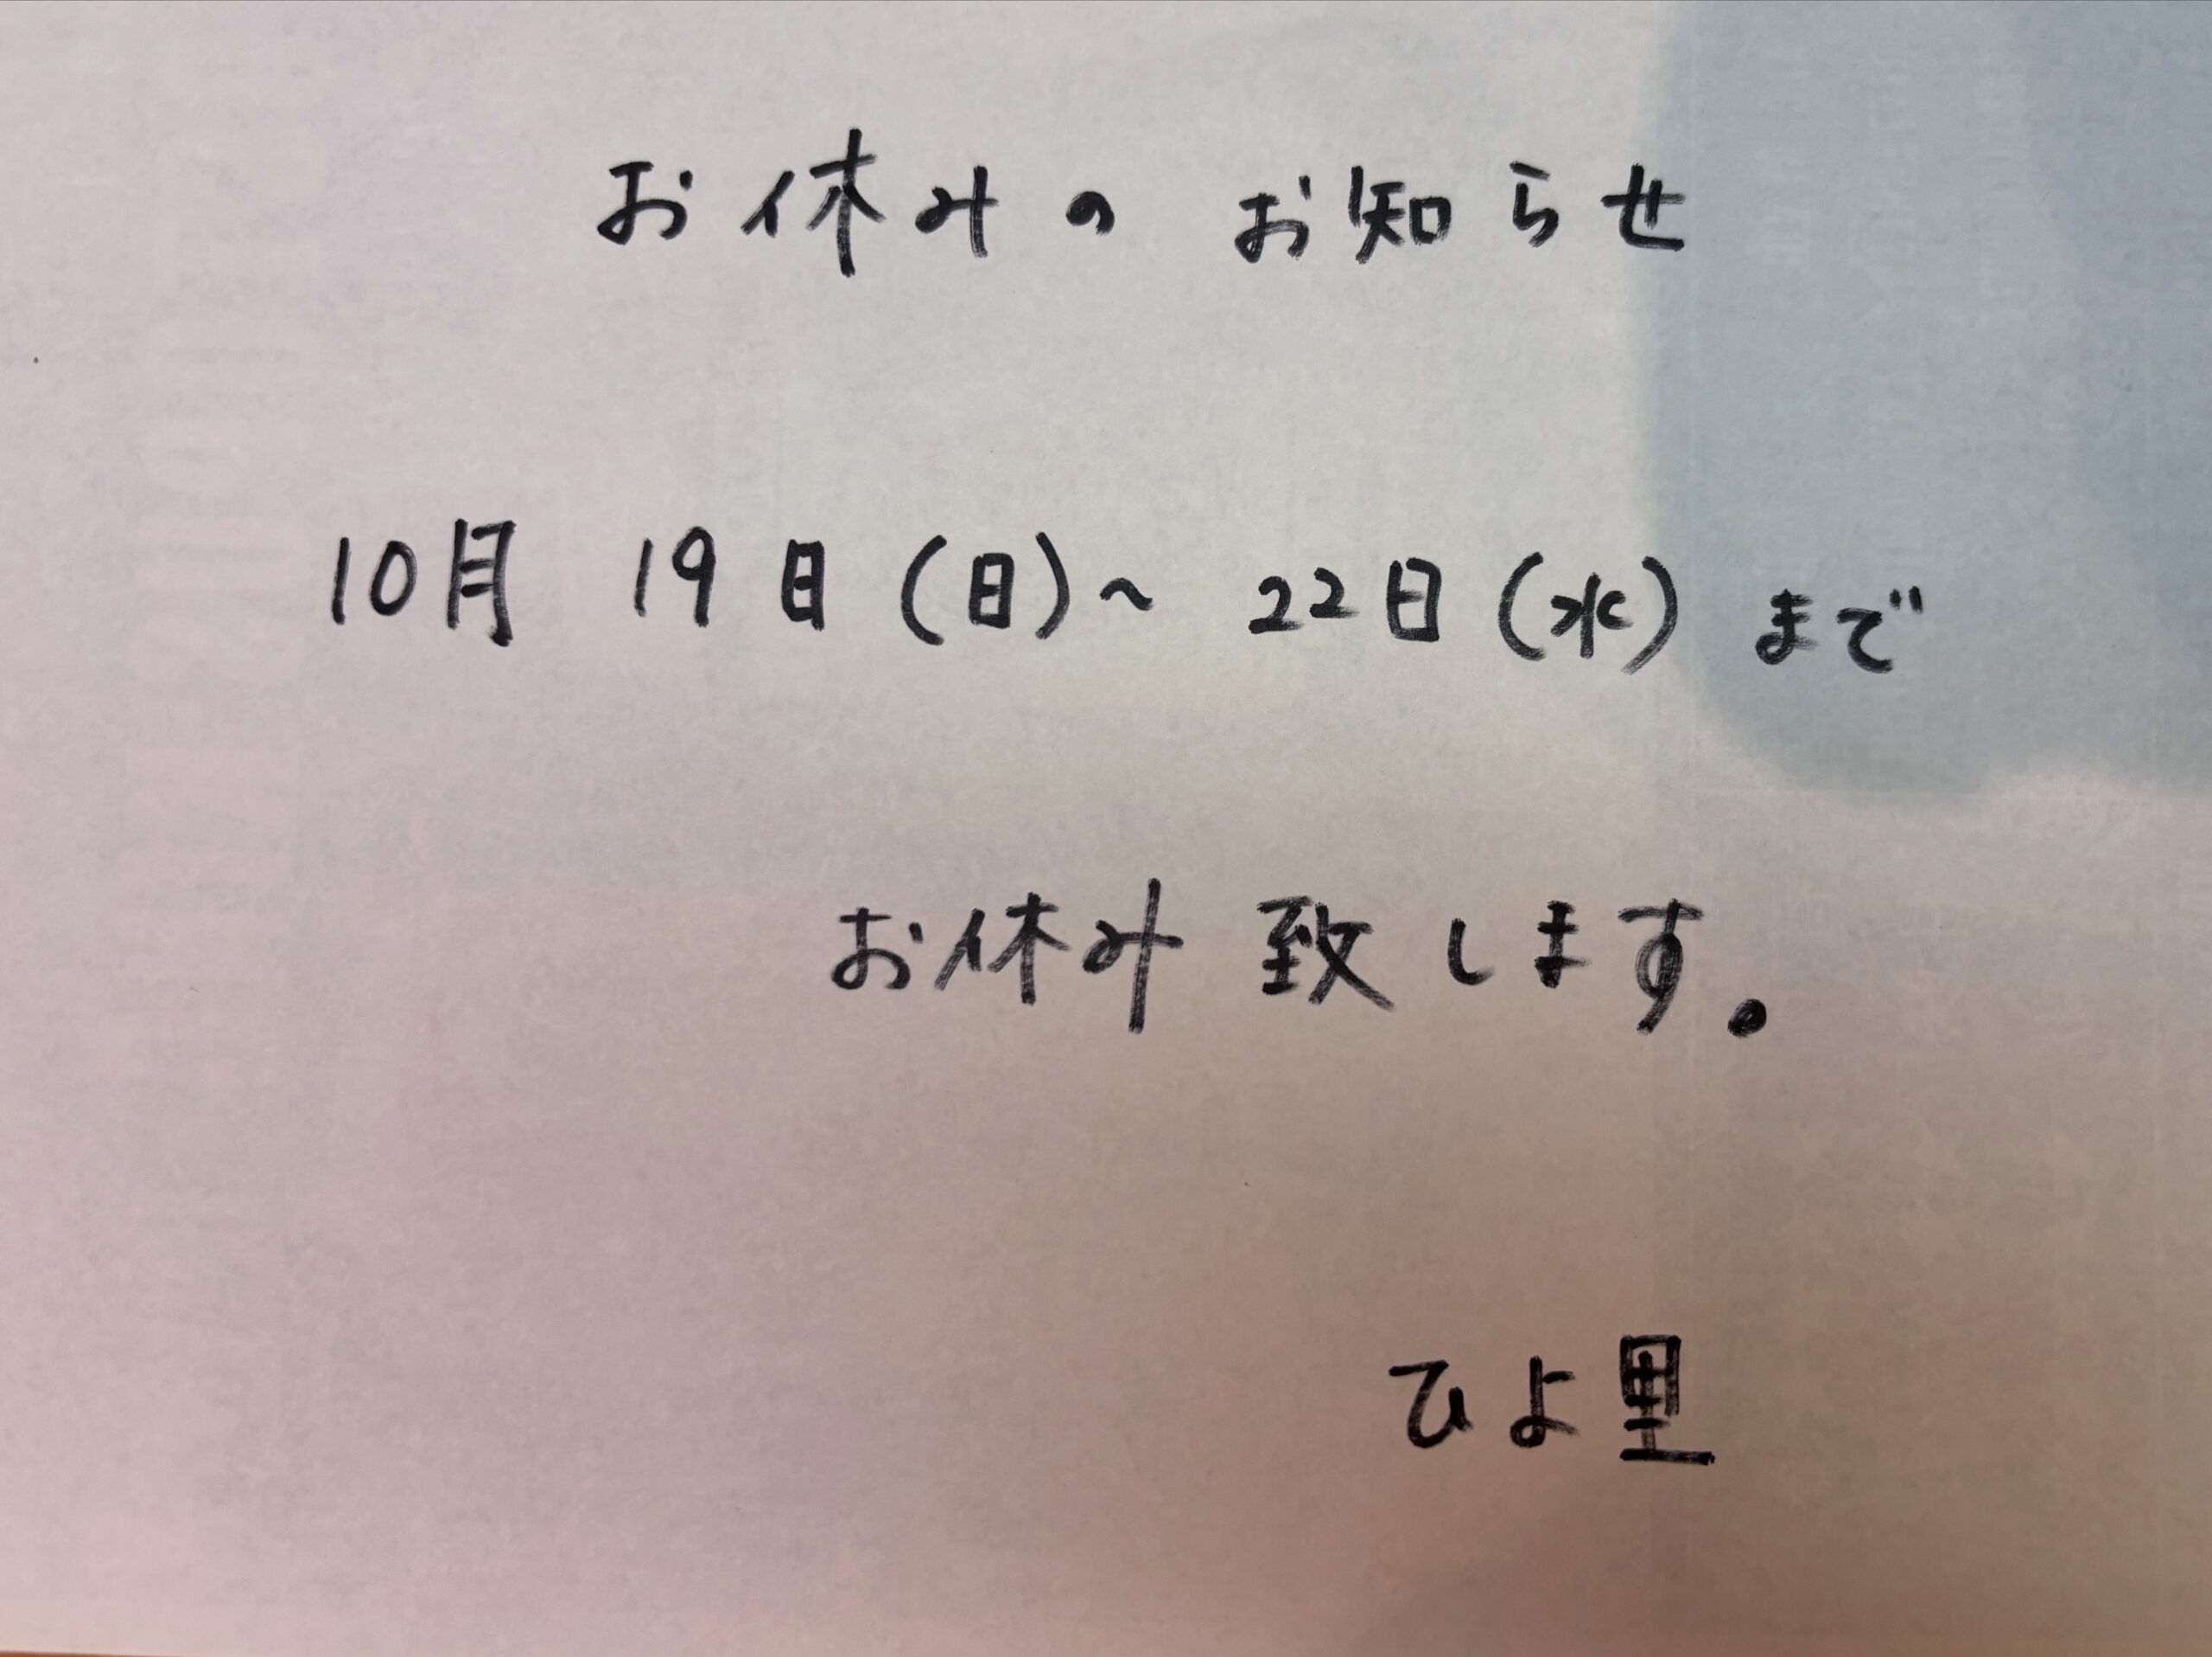 お休みの お知らせ
10月 19日(日)~ 22日(水)まで
お休み 致します。
ひよ里